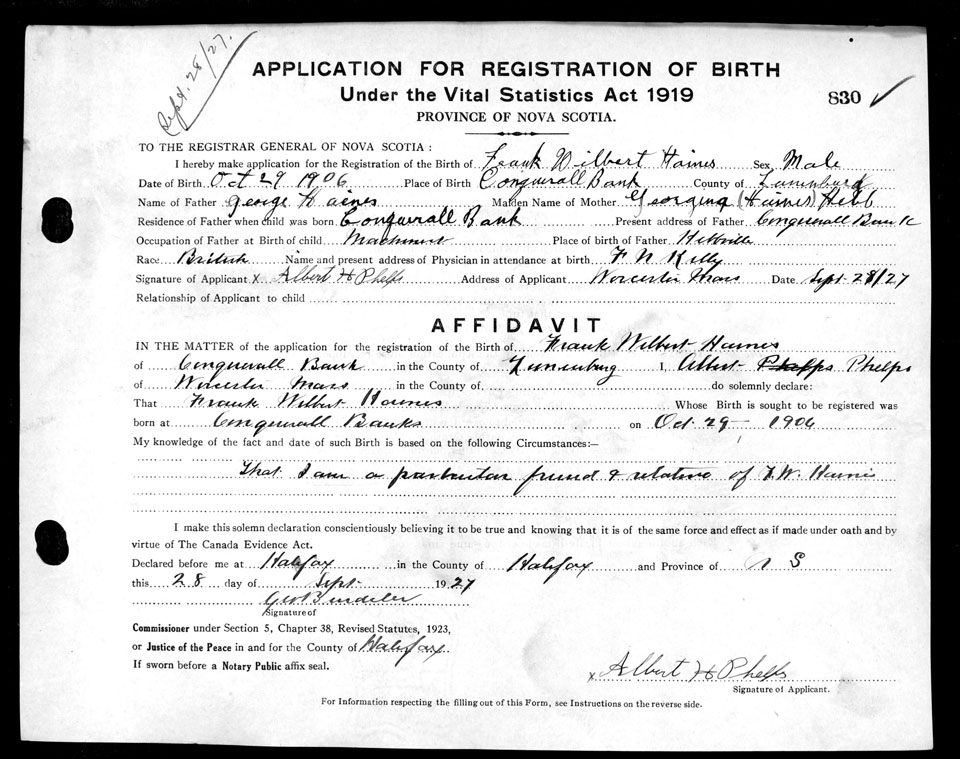 Sept. 28/27.
APPLICATION FOR REGISTRATION OF BIRTH
Under the Vital Statistics Act 1919
830 ✓
PROVINCE OF NOVA SCOTIA.
TO THE REGISTRAR GENERAL OF NOVA SCOTIA :
I hereby make application for the Registration of the Birth of Frank Wilbert Haines Sex Male
Date of Birth Oct 29 1906 Place of Birth Conquerall Bank County of Lunenburg
Name of Father George Haines Maiden Name of Mother Georgina (Haines) Hebb
Residence of Father when child was born Conquerall Bank Present address of Father Conquerall Bank
Occupation of Father at Birth of child Machinist Place of birth of Father Hebbville
Race British Name and present address of Physician in attendance at birth F N Kelly
Signature of Applicant x Albert H Phelps Address of Applicant Worcester Mass Date Sept 28/27
Relationship of Applicant to child
AFFIDAVIT
IN THE MATTER of the application for the registration of the Birth of Frank Wilbert Haines
of Conquerall Bank in the County of Lunenburg I, Albert Phelps
of Worcester Mass in the County of do solemnly declare:
That Frank Wilbert Haines Whose Birth is sought to be registered was
born at Conquerall Banks on Oct 29 1906
My knowledge of the fact and date of such Birth is based on the following Circumstances:—
That I am a particular friend & relative of F.W. Haines
I make this solemn declaration conscientiously believing it to be true and knowing that it is of the same force and effect as if made under oath and by
virtue of The Canada Evidence Act.
Declared before me at Halifax in the County of Halifax and Province of N S
this 28 day of Sept 1927
Signature of
Commissioner under Section 5, Chapter 38, Revised Statutes, 1923,
or Justice of the Peace in and for the County of Halifax.
If sworn before a Notary Public affix seal.
x Albert H Phelps
Signature of Applicant.
For Information respecting the filling out of this Form, see Instructions on the reverse side.